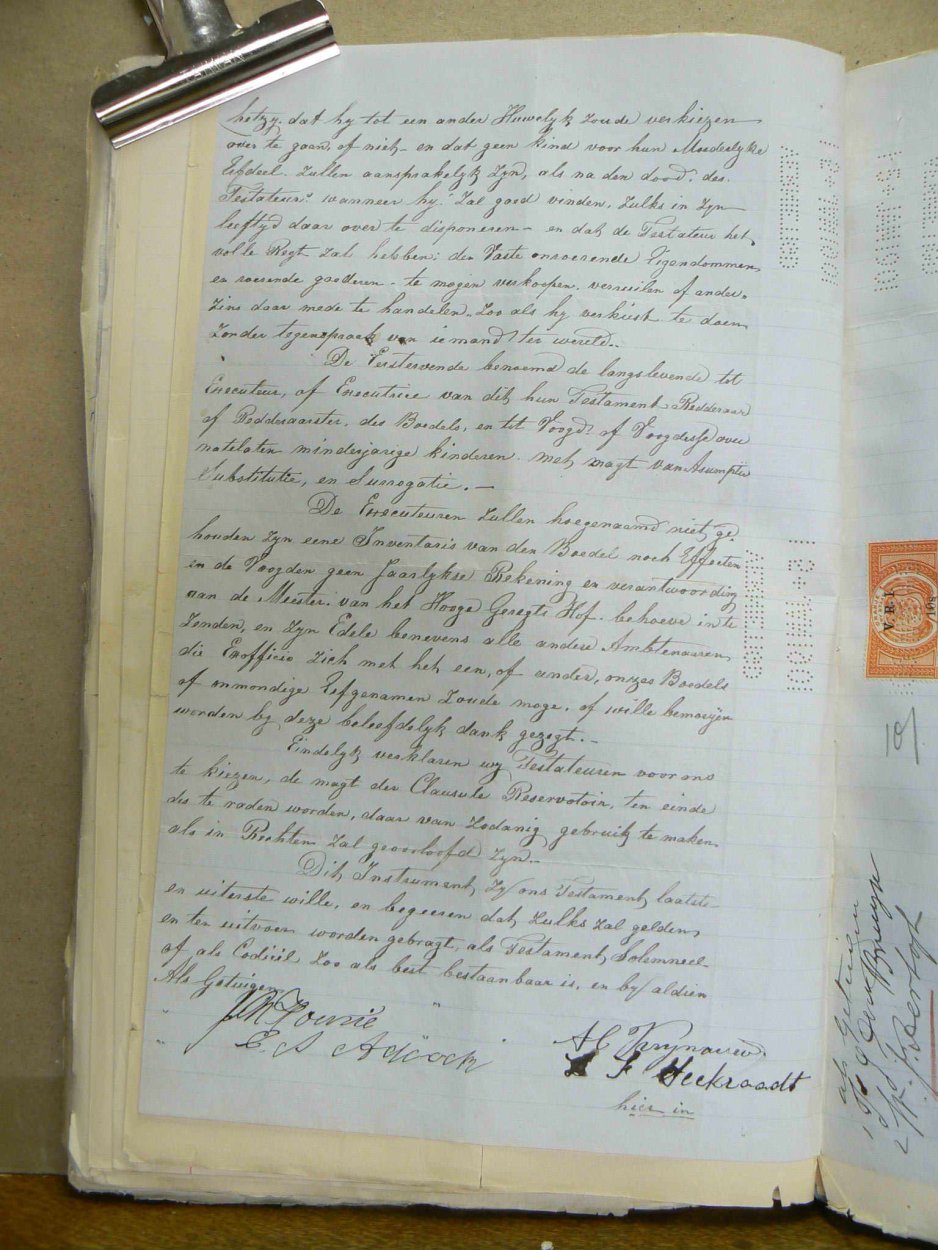 hetzy. dat hy tot een ander Huwelyk zoude verkiezen
over te gaan, of niet – en dat geen kind voor hun Moederlyke
Erfdeel. zullen aansprakelyk zyn, als na den dood, des
Testateur" wanneer hy" zal goed vinden, zulks in zyn
leeftyd daar over te disponeren – en dat de Testateur het
volle Regt zal hebben: den Vaste onroerende Eigendommen
en roerende goederen – te mogen verkoopen. verruilen of ander„
zins daar mede te handelen„ zoo als hy verkiest te doen
zonder tegenspraak van iemand ter wereld..
De Eerstervende benoemd de langslevende tot
Executeur, of Executrice van dit hun Testament, Redderaar
of Redderaarster, des Boedels, en tot Voogd, of Voogdesse over
natelaten minderjarige kinderen. met magt van Asumptie
Substitutie, en Surrogatie. –
De Executeuren zullen hoegenaamd niet ge
houden zyn eene Inventaris van den Boedel noch Effecten
en de Voogden geen Jaarlykse Rekening en verantwoording
van de Meester. van het Hooge Geregts Hof. behoeve in te
zenden, en zyn Edele benevens alle andere Ambtenaaren
die Exofficio zich met het een, of ander, onzes Boedels
of onmondige Erfgenamen zoude moge, of wille bemoeijen
worden by deze beleefdelyk dank gezegt. –
Eindelyk verklaren wy Testateuren voor ons
te kiezen, de magt der Clausule Reservatoir, ten einde
des te raden worden, daar van zodanig gebruik te maken
als in Rechten zal geoorloofd zyn –
Dit Instrument zy ons Testament laatste
en uiterste wille, en begeeren dat zulks zal gelden
en ten uitvoer worden gebragt, als Testament, Solemneel
of als Codicil zoo als best bestaanbaar is, en by aldien
Als Getuigen
E. A Adcock
F Heckraodt
hier in
V.R.I.
als Getuien